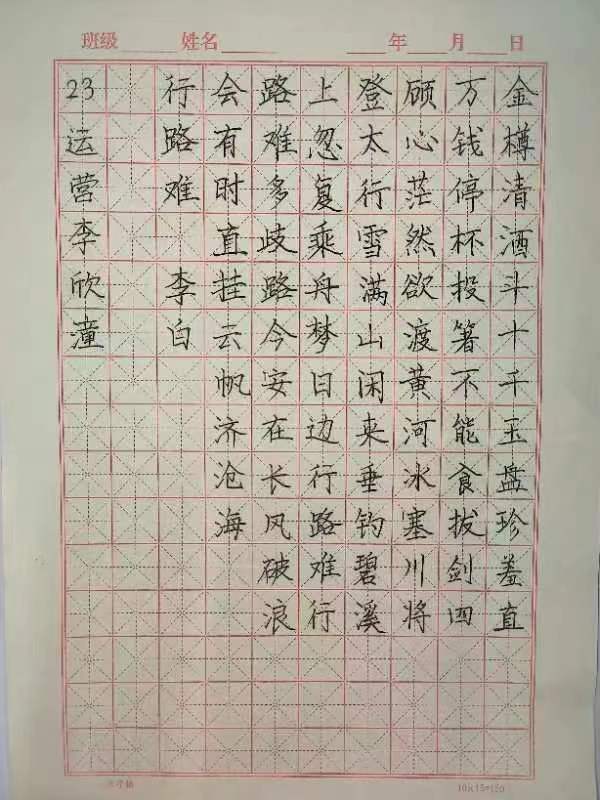 班级______姓名______ ____年____月____日
金樽清酒斗十千玉盘珍羞直
万钱停杯投箸不能食拔剑四
顾心茫然欲渡黄河冰塞川将
登太行雪满山闲来垂钓碧溪
上忽复乘舟梦日边行路难行
路难多歧路今安在长风破浪
会有时直挂云帆济沧海
行路难 李白
23运营李欣潼
10x15=150